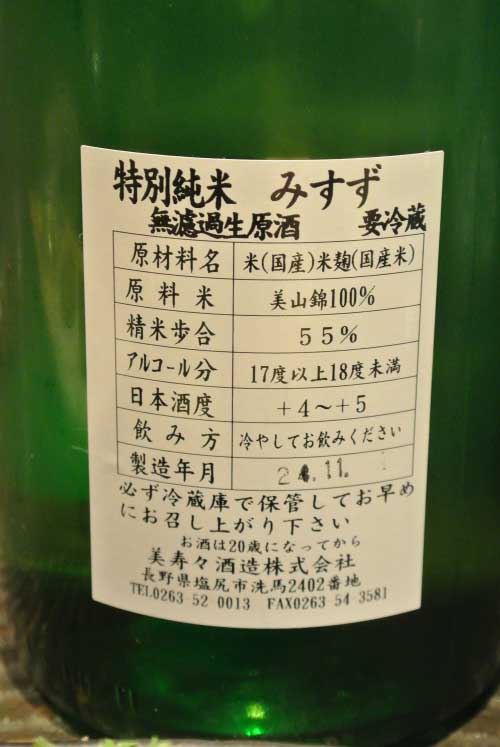 特別純米 みすず
無濾過生原酒 要冷蔵
原材料名 米(国産)米麹(国産米)
原料米 美山錦100%
精米歩合 55%
アルコール分 17度以上18度未満
日本酒度 +4～+5
飲み方 冷やしてお飲みください
製造年月 24.11.
必ず冷蔵庫で保管してお早め
にお召し上がり下さい
お酒は20歳になってから
美寿々酒造株式会社
長野県塩尻市洗馬2402番地
TEL0263-52-0013 FAX0263-54-3581